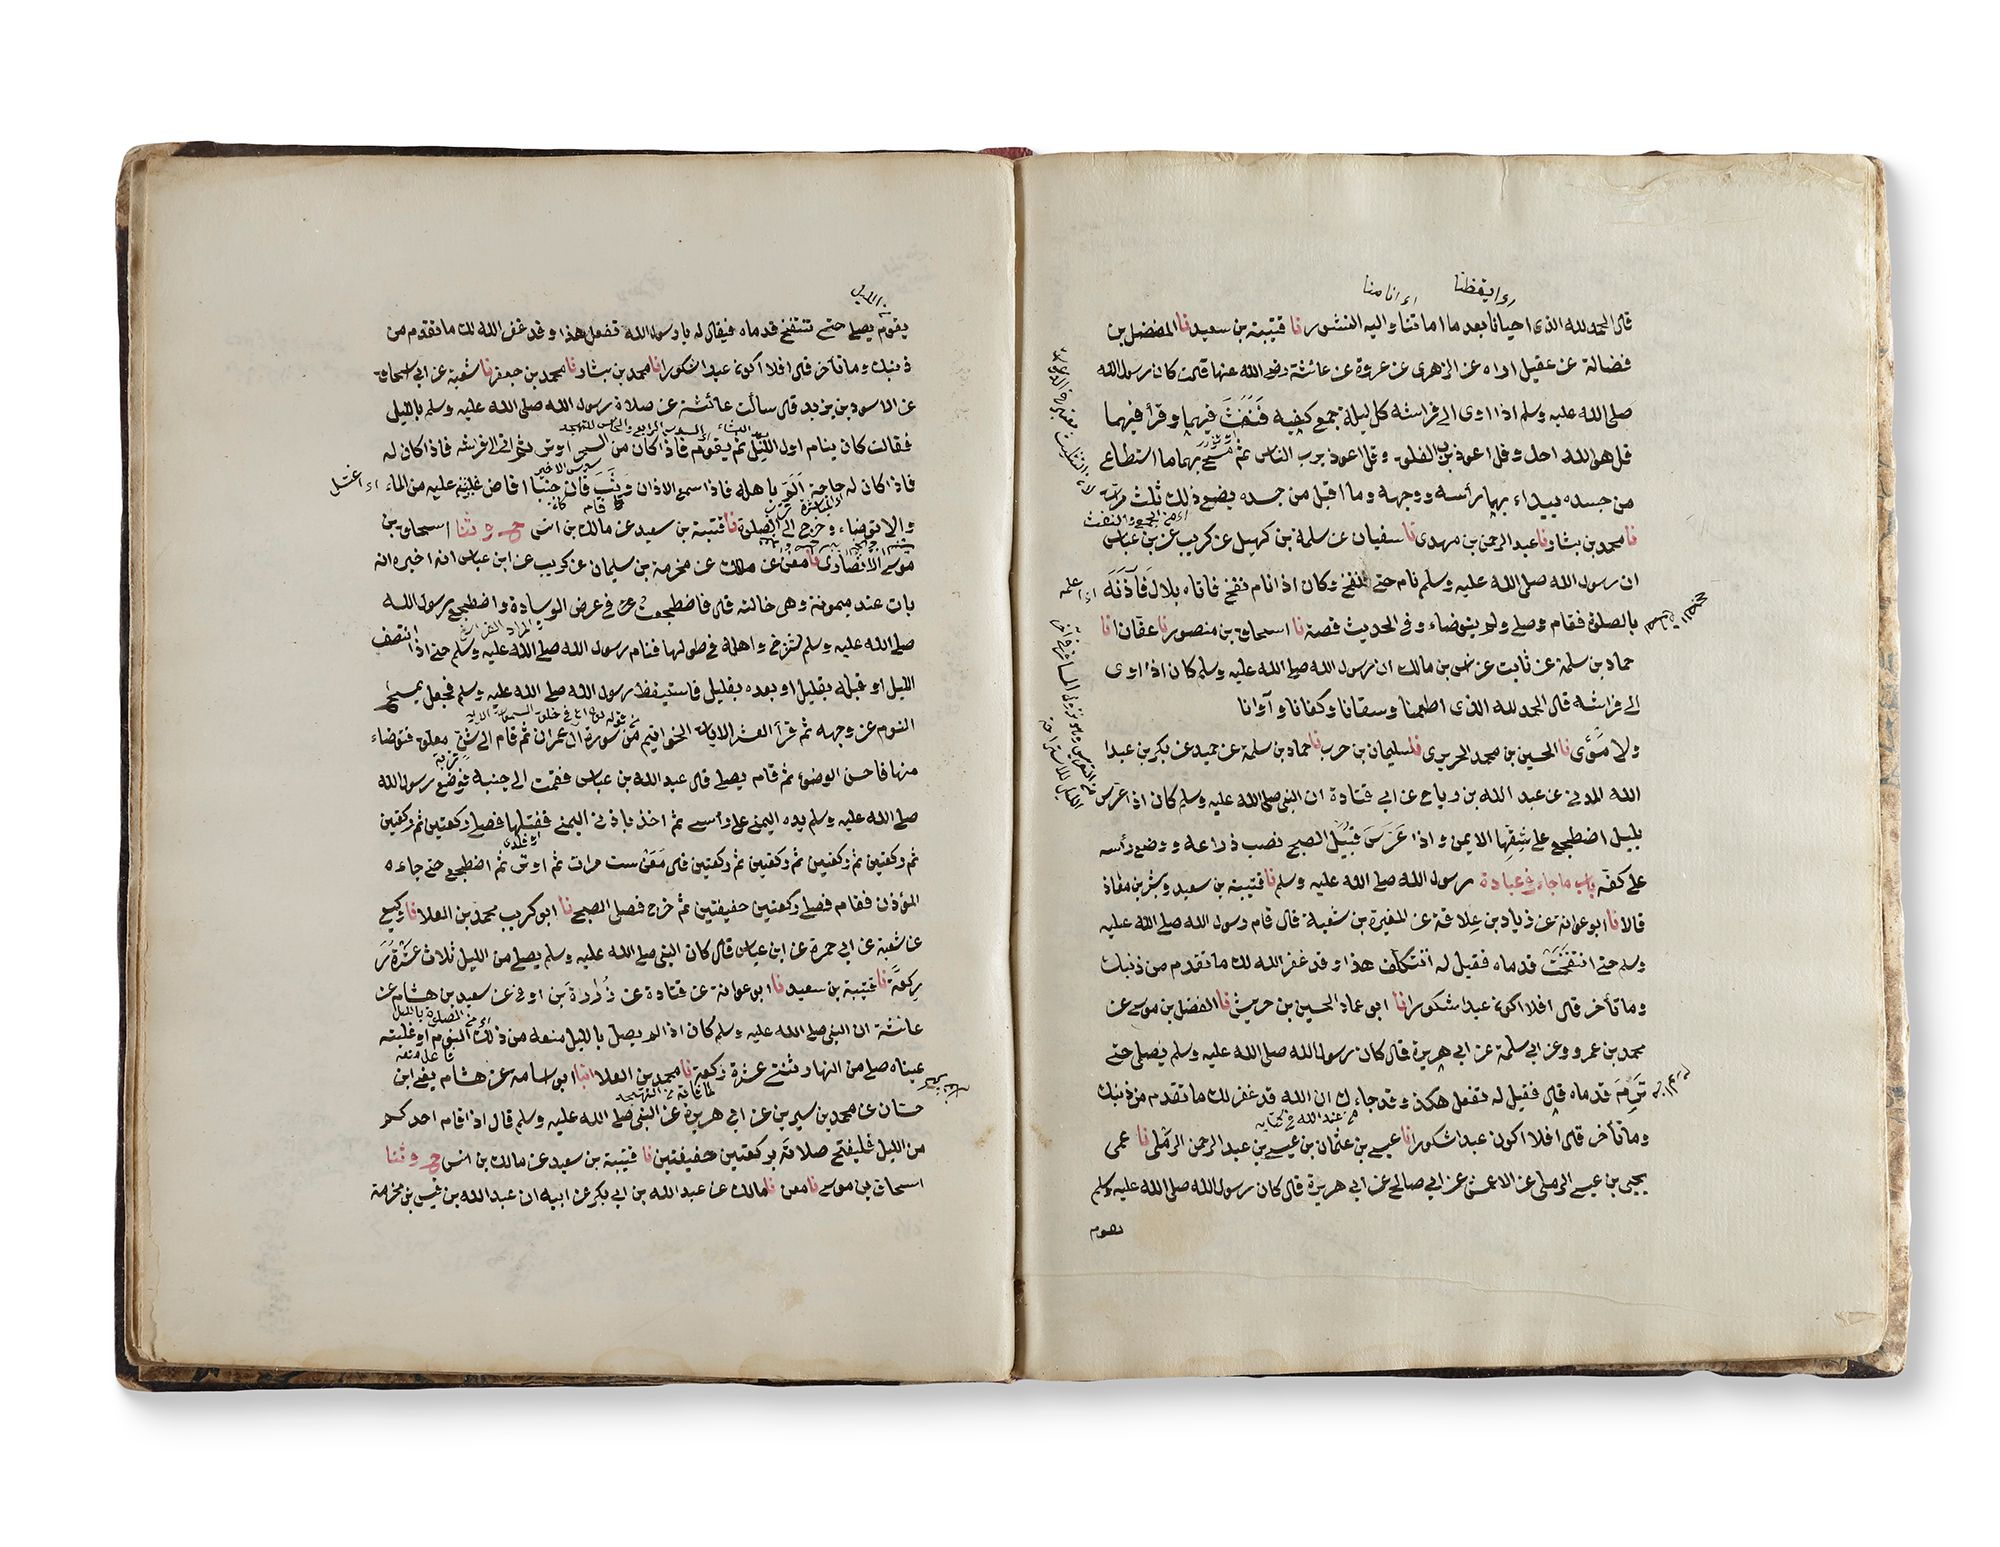 رد ايقظنا
اى انامنا
قال الحمد لله الذى احيانا بعد ما اماتنا واليه النشور نا قتيبة بن سعيد نا المفضل بن
فضالة عن عقيل اراه عن الزهرى عن عروة عن عائشة رضى الله عنها قالت كان رسول الله
صلى الله عليه وسلم اذا اوى الى فراشه كل ليلة جمع كفيه فَنَفَثَ فيهما وقرأ فيهما
قل هو الله احد وقل اعوذ برب الفلق وقل اعوذ برب الناس ثم مسح بهما ما استطاع
من جسده يبداء بهما رأسه ووجهه وما اقبل من جسده يصنع ذلك ثلث مرات
اى من الجمع والنفث
نا محمد بن بشار نا عبد الرحمن بن مهدى نا سفيان عن سلمة بن كهيل عن كريب عن بن عباس
ان رسول الله صلى الله عليه وسلم نام حتى نفخ وكان اذا نام نفخ فاتاه بلال فَآذَنَه
اى اعلمه
بالصلوة فقام وصلى ولم يتوضاء وفى الحديث قصة نا اسحاق بن منصور نا عفان انا
حماد بن سلمة عن ثابت عن انس بن مالك ان رسول الله صلى الله عليه وسلم كان اذا اوى
الى فراشه قال الحمد لله الذى اطعمنا وسقانا وكفانا وآوانا
ولا مُؤوى نا الحسين بن محمد الحريرى نا سليمان بن حرب نا حماد بن سلمة عن حميد عن بكر بن عبد ا
الله المدنى عن عبد الله بن رباح عن ابى قتادة ان النبى صلى الله عليه وسلم كان اذا عرس
بليل اضطجع على شقها الايمن واذا عَرَسَ قبيل الصبح نصب ذراعه ووضع رأسه
على كفه باب ما جاء فى عبادة رسول الله صلى الله عليه وسلم نا قتيبة بن سعيد وبشر بن معاذ
قالا نا ابو عوانة عن زياد بن عِلاقة عن المغيرة بن شعبة قال قام رسول الله صلى الله عليه
وسلم حتى انتفخت قدماه فقيل له اتتكلف هذا وقد غفر الله لك ما تقدم من ذنبك
وما تأخر قال افلا اكون عبدا شكورا نا ابو عمار الحسين بن حريث نا الفضل بن موسى عن
محمد بن عمرو وعن ابى سلمة عن ابى هريرة قال كان رسول الله صلى الله عليه وسلم يصلى حتى
تَرِمَ قدماه قال فقيل له تفعل هكذ وقد جاءك ان الله قد غفر لك ما تقدم من ذنبك
من عند الله فى كتابه
وما تأخر قال افلا اكون عبدا شكورا نا عيسى بن عثمان بن عيسى بن عبد الرحمن الرملى نا عمى
يحيى بن عيسى الرملى عن الاعمش عن ابى صالح عن ابى هريرة قال كان رسول الله صلى الله عليه وسلم
يقوم
من الليل
يقوم يصلى حتى تنتفخ قدماه فيقال له يا رسول الله تفعل هذا وقد غفر الله لك ما تقدم من
ذنبك وما تأخر قال افلا اكون عبدا شكورا نا محمد بن بشار نا محمد بن جعفر نا شعبة عن ابى اسحاق
عن الاسود بن يزيد قال سألت عائشة عن صلاة رسول الله صلى الله عليه وسلم بالليل
فقالت كان ينام اول الليل ثم يقوم فاذا كان من السحر اوتر ثم اتى الى فراشه فاذا كان له
فاذا كان له حاجة اَلَمَّ باهله فاذا سمع الاذان وَثَبَ فان جنبا افاض عليه من الماء
اى اغتسل
والا توضاء وخرج الى الصلوة نا قتيبة بن سعيد عن مالك بن انس ح وثنا اسحاق بن
موسى الانصارى نا معن عن مالك عن مخرمة بن سليمان عن كريب عن ابن عباس انه اخبره انه
بات عند ميمونة وهى خالته قال فاضطجعت فى عرض الوسادة واضطجع رسول الله
صلى الله عليه وسلم واهله فى طولها فنام رسول الله صلى الله عليه وسلم حتى اذا انتصف
الليل او قبله بقليل او بعده بقليل فاستيقظ رسول الله صلى الله عليه وسلم فجعل يمسح
النوم عن وجهه ثم قرأ العشر الايات الخواتيم من سورة آل عمران ثم قام الى شن معلق فتوضاء
منها فاحسن الوضوء ثم قام يصلى قال عبد الله بن عباس فقمت الى جنبه فوضع رسول الله
صلى الله عليه وسلم يده اليمنى على رأسى ثم اخذ باذنى اليمنى ففتلها فصلى ركعتين ثم ركعتين
ثم ركعتين ثم ركعتين ثم ركعتين ثم ركعتين قال مَعَنْ ست مرات ثم اوتر ثم اضطجع حتى جاءه
المؤذن فقام فصلى ركعتين خفيفتين ثم خرج فصلى الصبح نا ابو كريب محمد بن العلا نا وكيع
عن شعبة عن ابى حمزة عن ابن عباس قال كان النبى صلى الله عليه وسلم يصلى من الليل ثلاث عشرة
ركعة نا قتيبة بن سعيد نا ابو عوانة عن قتادة عن زُرارة بن اوفى عن سعيد بن هشام عن
عائشة ان النبى صلى الله عليه وسلم كان اذا لم يصل بالليل منعه من ذلك النوم او غلبته
عيناه صلى من النهار ثنتى عشرة ركعة نا محمد بن العلا انبا ابو اسامة عن هشام يعنى ابن
حسان عن محمد بن سيرين عن ابى هريرة عن النبى صلى الله عليه وسلم قال اذا قام احدكم
من الليل فليفتح صلاته بركعتين خفيفتين نا قتيبة بن سعيد عن مالك بن انس ح وثنا
اسحاق بن موسى نا معن نا مالك عن عبد الله بن ابى بكر عن ابيه ان عبد الله بن قيس بن مخرمة